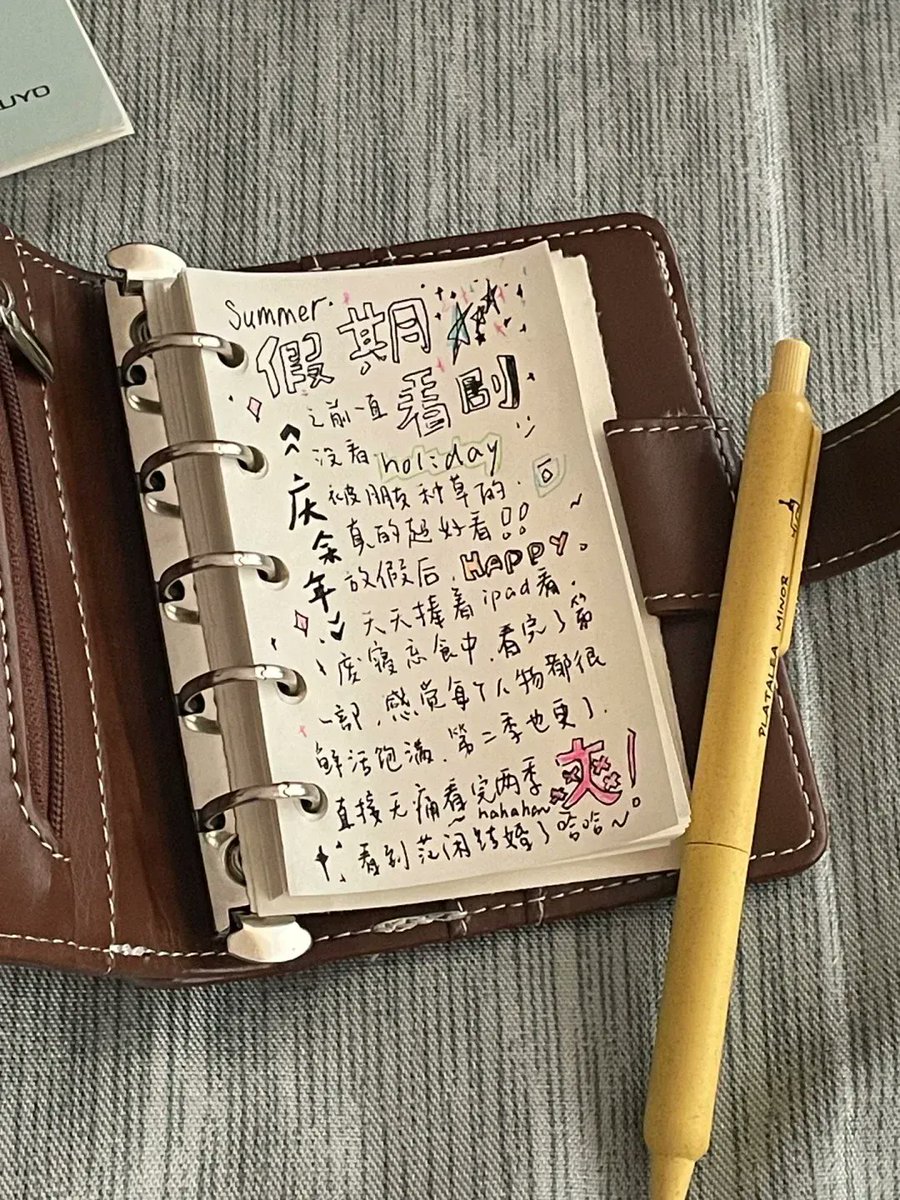 UYO
Summer.
假期
看剧
《庆余年》
之前一直
没看.holiday
被朋友种草的.
真的超好看!!
放假后.HAPPY.
天天捧着ipad看.
废寝忘食中.看完了第
一部,感觉每个人物都很
鲜活饱满.第二季也更了.
直接无痛看完两季爽!
hahahah
看到范闲结婚了哈哈~
PLATALEA MINOR